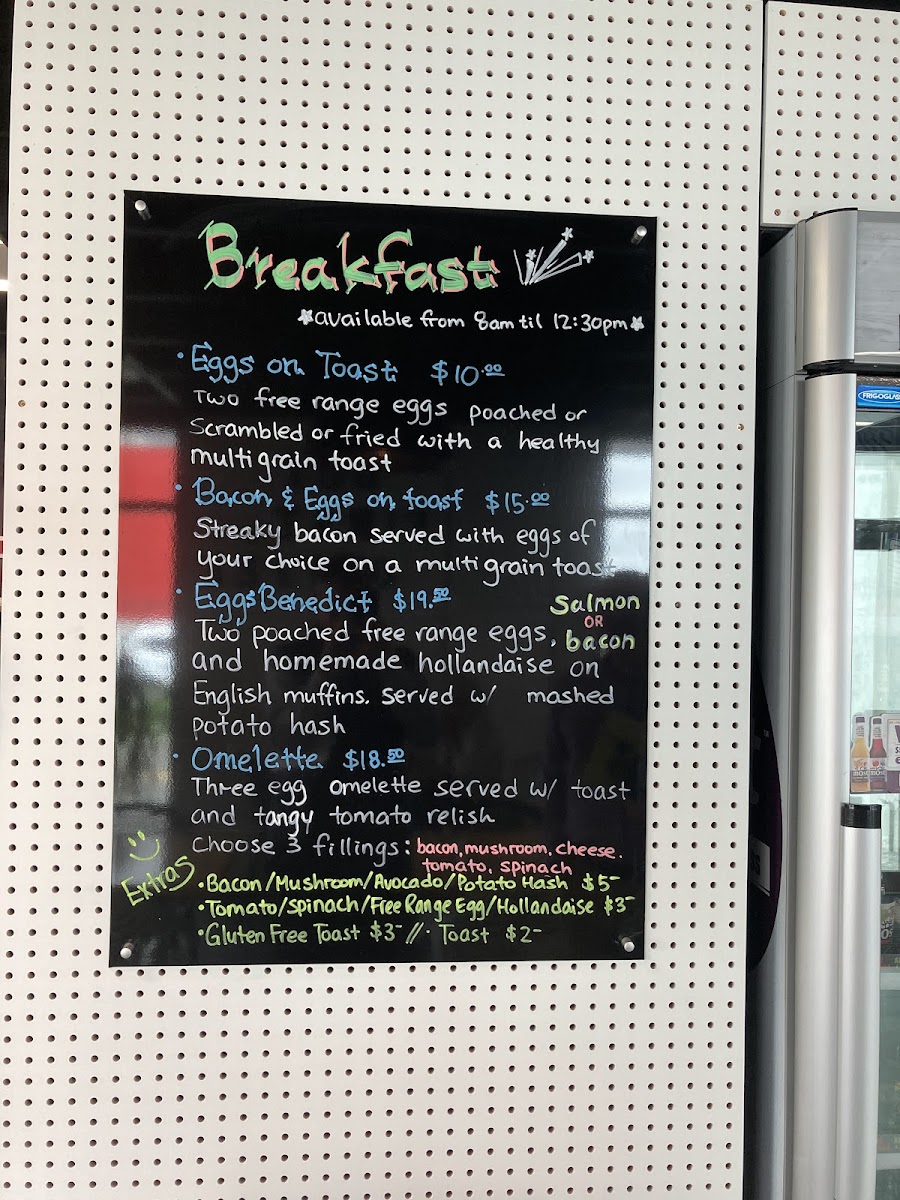 Breakfast
*available from 8am til 12:30pm*
• Eggs on Toast $10.00
Two free range eggs poached or
Scrambled or fried with a healthy
multigrain toast
• Bacon & Eggs on toast $15.00
Streaky bacon served with eggs of
your choice on a multigrain toast
• Eggs Benedict $19.50
Salmon
OR
bacon
Two poached free range eggs,
and homemade hollandaise on
English muffins. served w/ mashed
potato hash
• Omelette $18.50
Three egg omelette served w/ toast
and tangy tomato relish
Choose 3 fillings: bacon, mushroom, cheese.
tomato, spinach
Extras
• Bacon/Mushroom/Avocado/Potato Hash $5-
• Tomato/Spinach/Free Range Egg/Hollandaise $3-
• Gluten Free Toast $3- //• Toast $2-